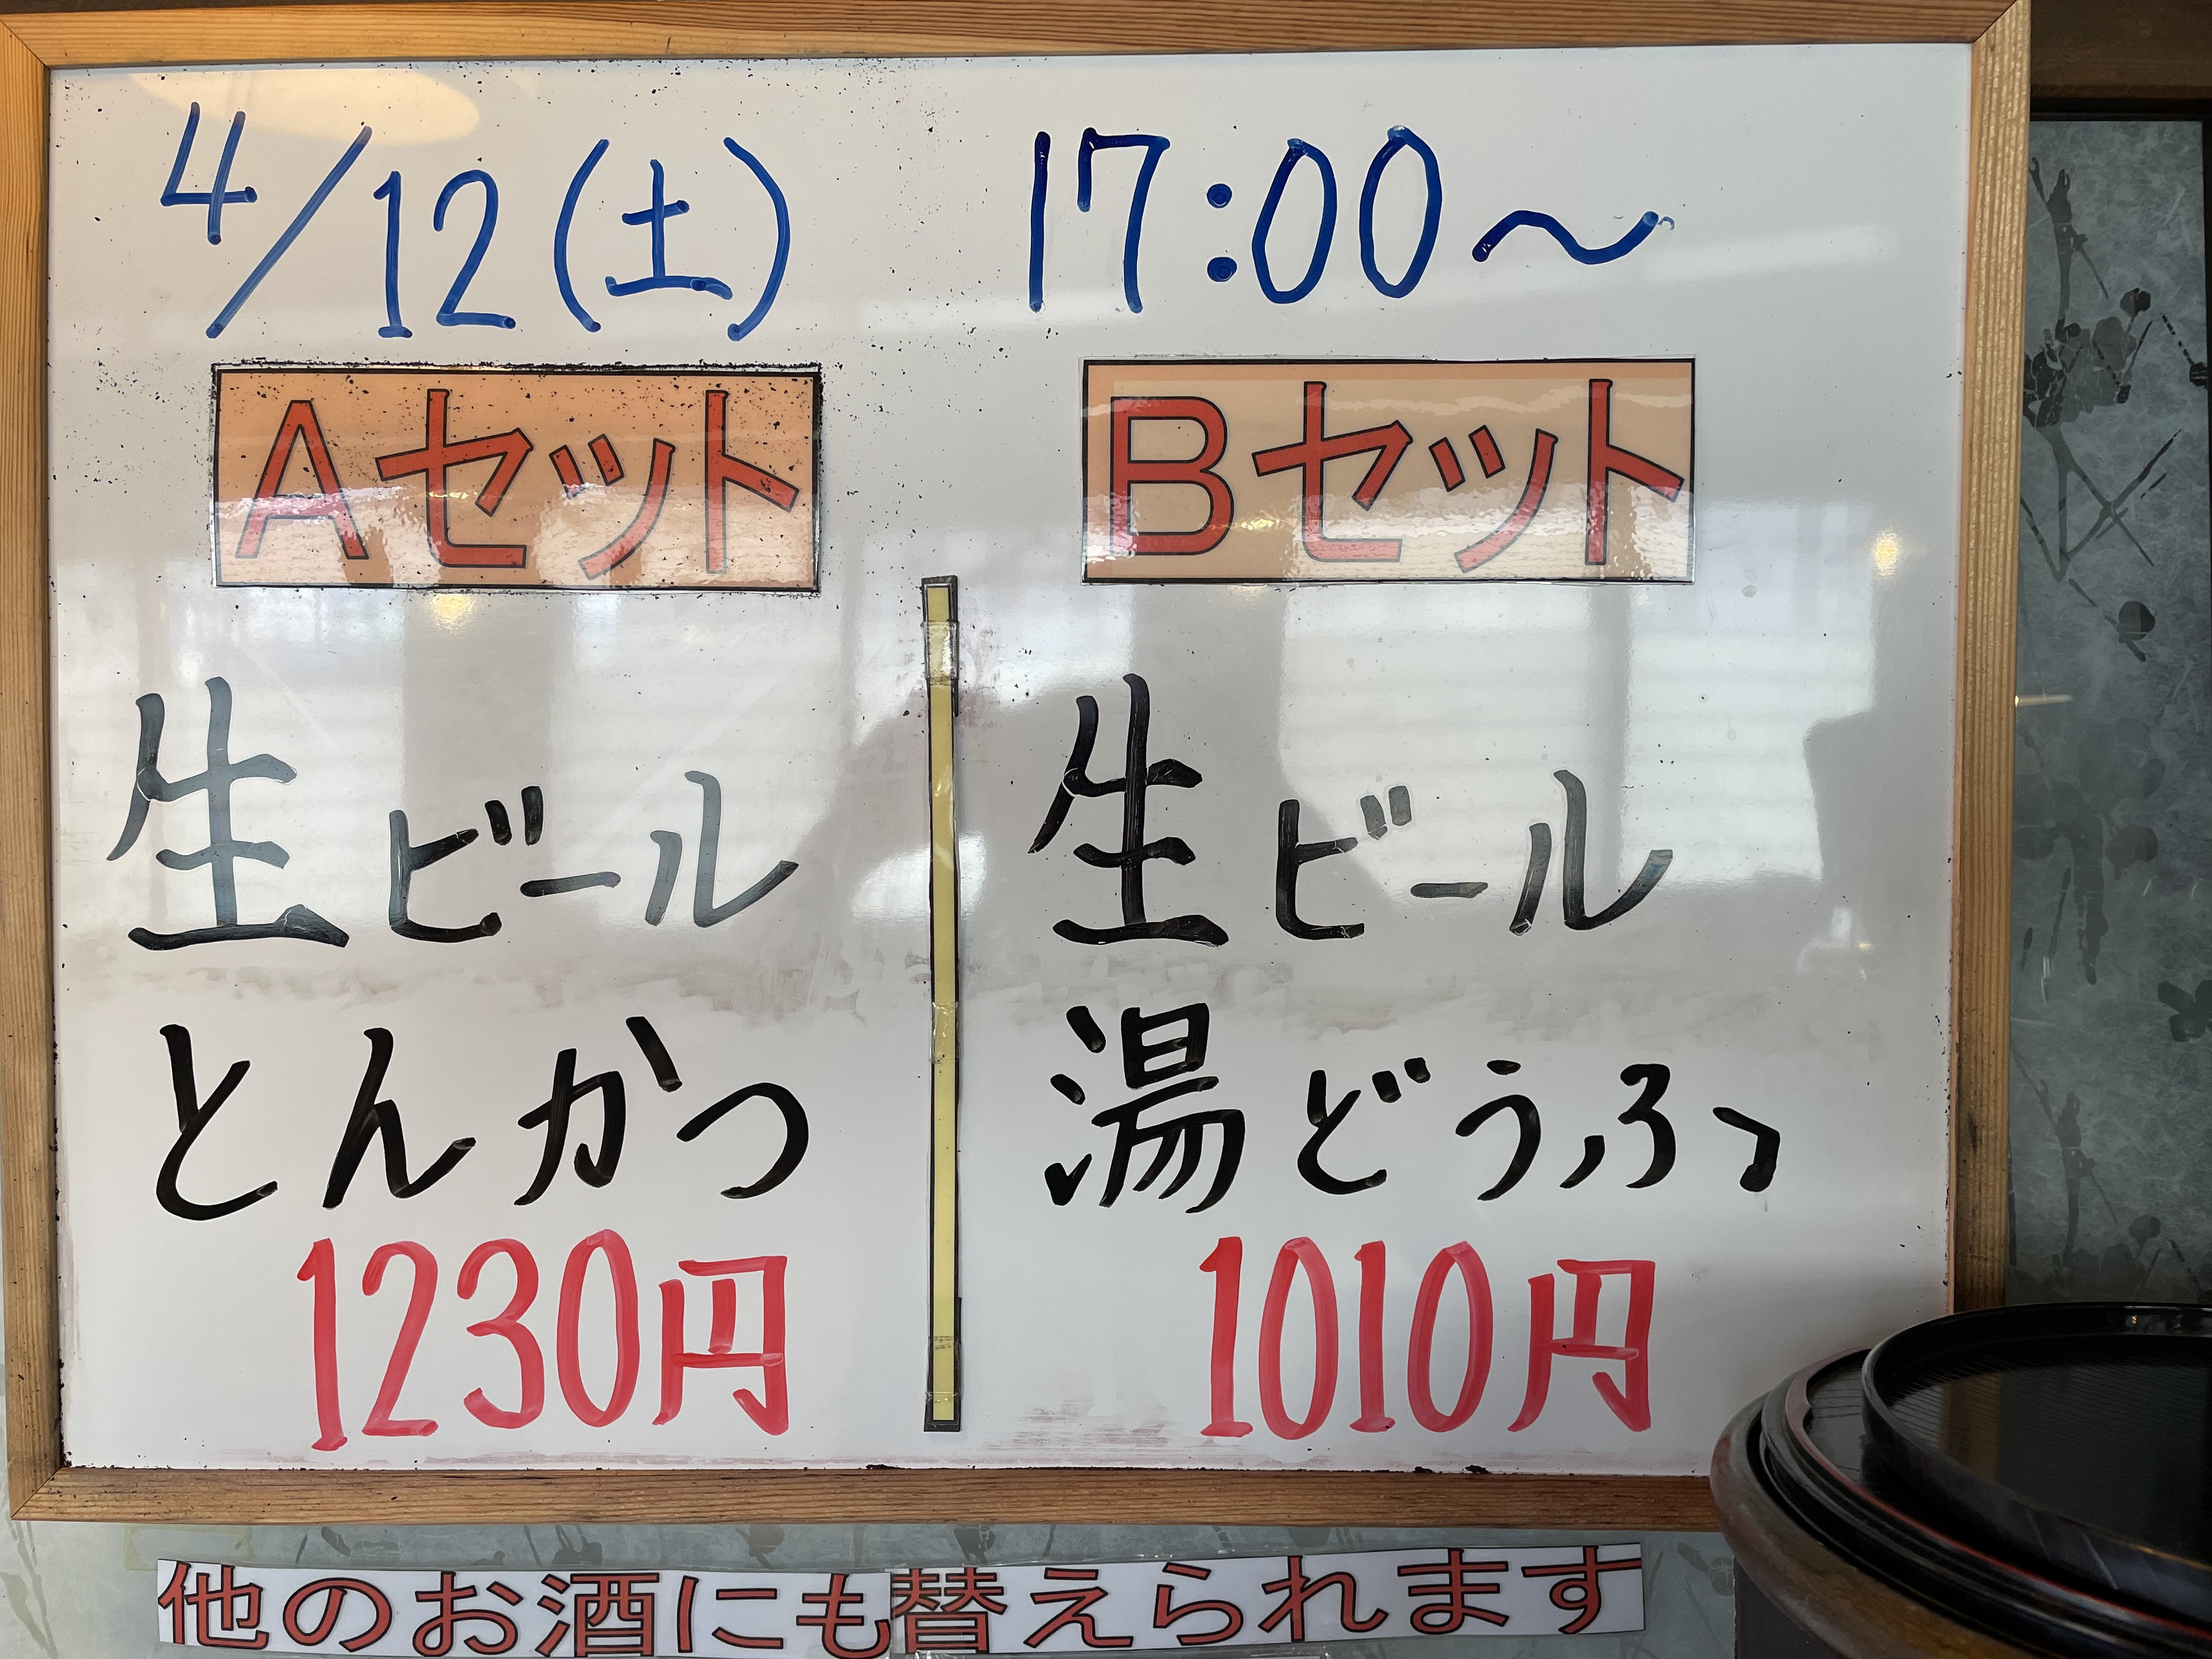 4/12(土) 17:00～
Aセット
生ビール
とんかつ
1230円
Bセット
生ビール
湯どうふ
1010円
他のお酒にも替えられます